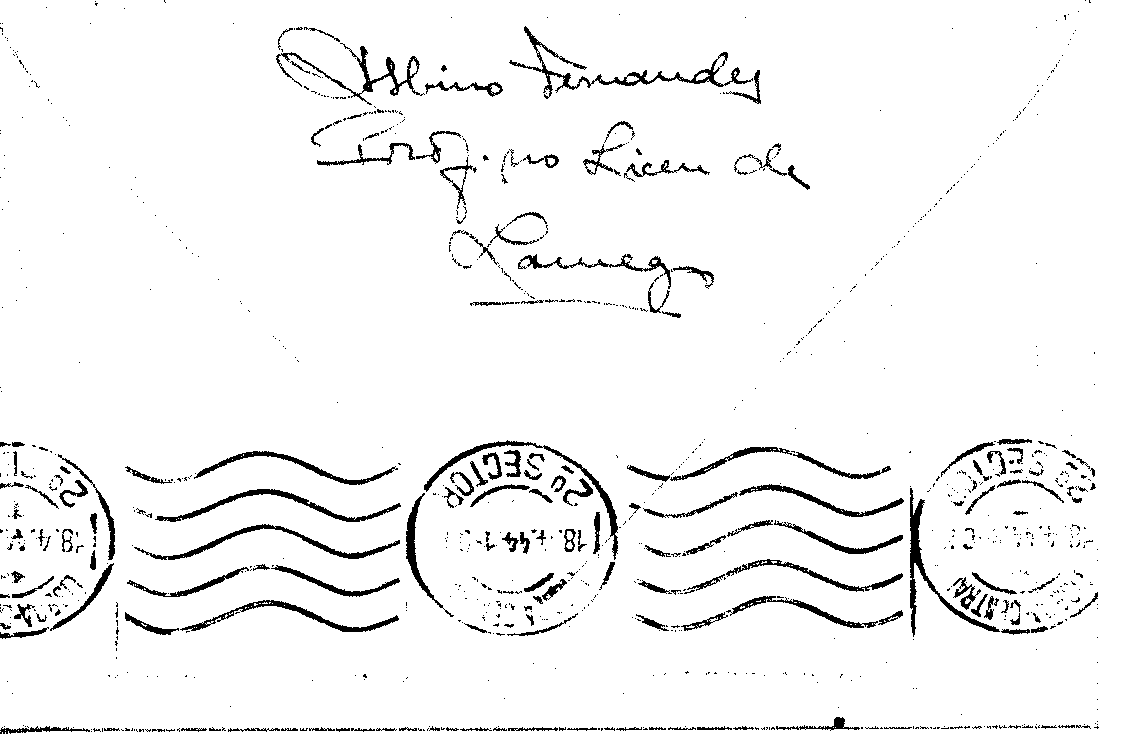 Albino Fernandes
Prof. no Liceu de
Lamego
2º SECTOR
18.4.44
LISBOA-CENTRAL
2º SECTOR
18.4.44-1
2º SECTOR
CENTRAL